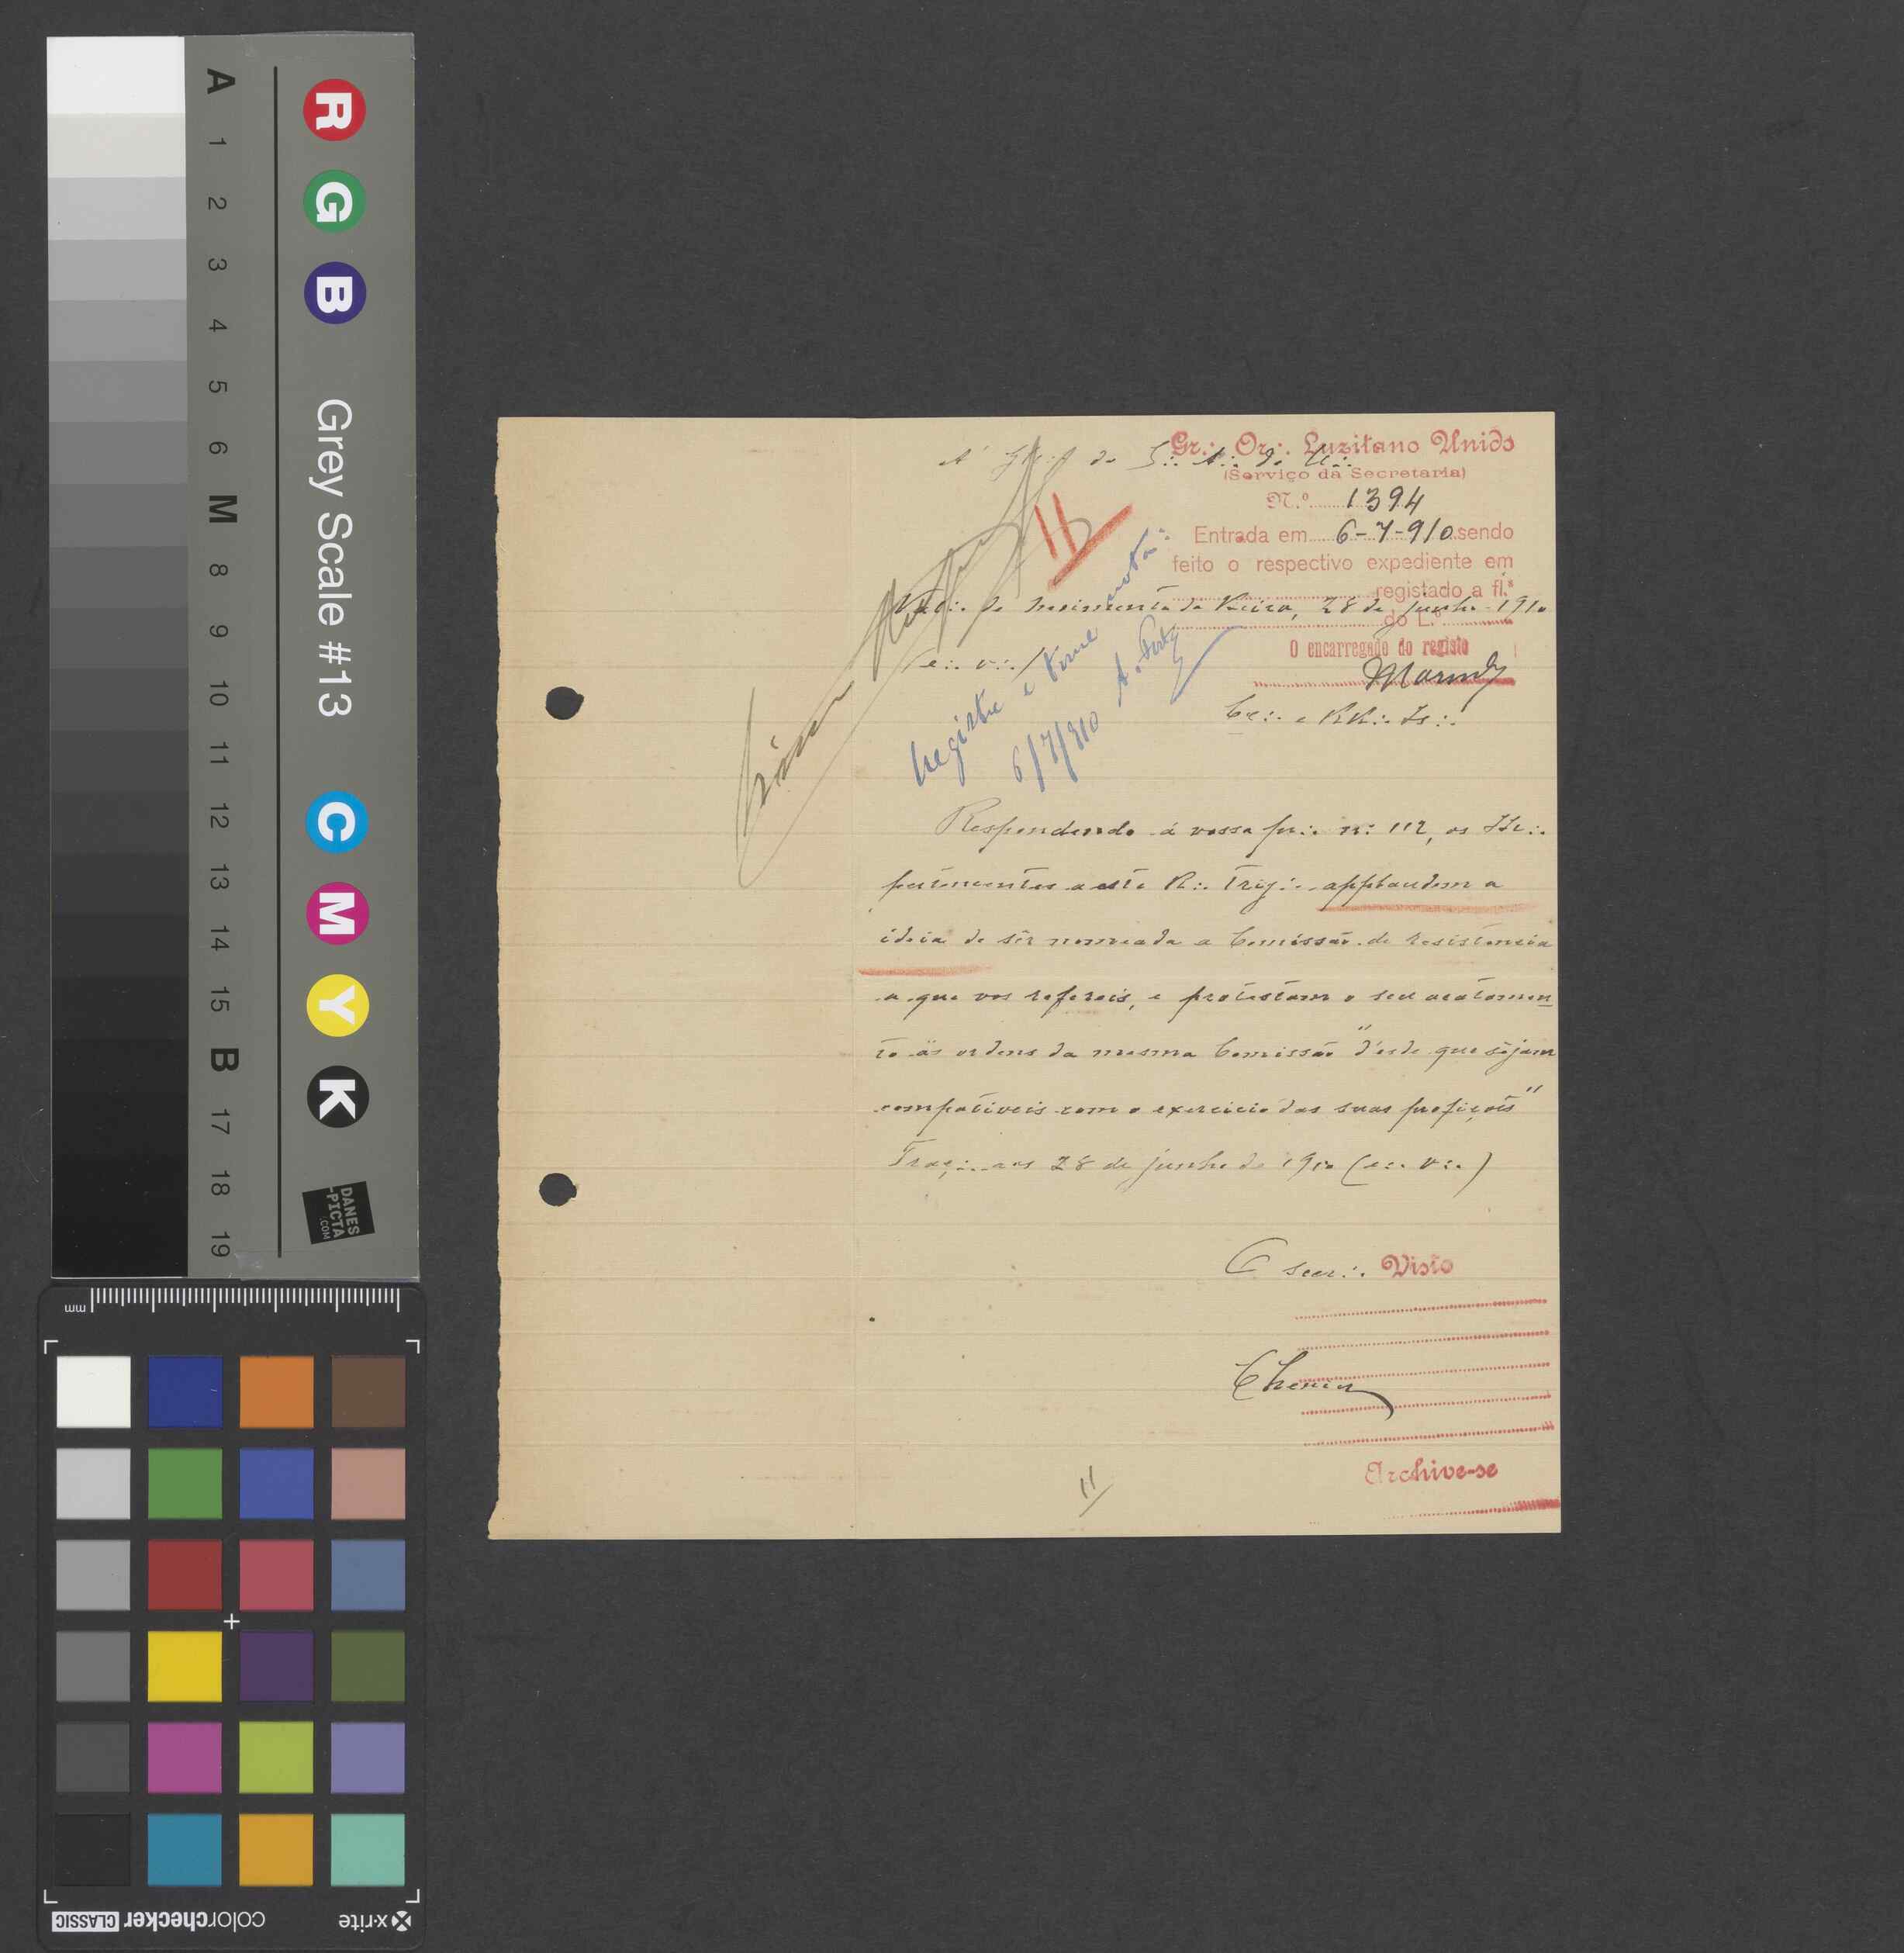 Gr∴ Or∴ Luzitano Unido
(Serviço da Secretaria)
N.º 1394
Entrada em 6-7-910 sendo
feito o respectivo expediente em
registado a fl.ˢ
do L.º
O encarregado do registo
Á Gl∴ do S∴ A∴ do U∴
11
de Vieira, 28 de junho 1910
(e∴ v∴)
Registe e tome nota
6/7/910
Cr∴ e RR∴ Ir∴
Respondendo á vossa pr∴ nº 112, os IIr∴
pertencentes a este R∴ Trig∴ applaudem a
ideia de sêr nomeada a Comissão de resistencia
a que vos refereis, e protestam o seu acatamen
to ás ordens da mesma Comissão "d'esde que sejam
compativeis com o exercicio das suas profiçoẽs"
Traç∴ aos 28 de junho de 1910 (e∴ v∴)
O secr∴
Visto
Archive-se
11
A
1
2
3
4
5
6
M
8
9
10
11
12
13
14
15
B
17
18
19
R
G
B
Grey Scale #13
C
M
Y
K
DANES
-PICTA
.COM
mm
x-rite
colorchecker CLASSIC